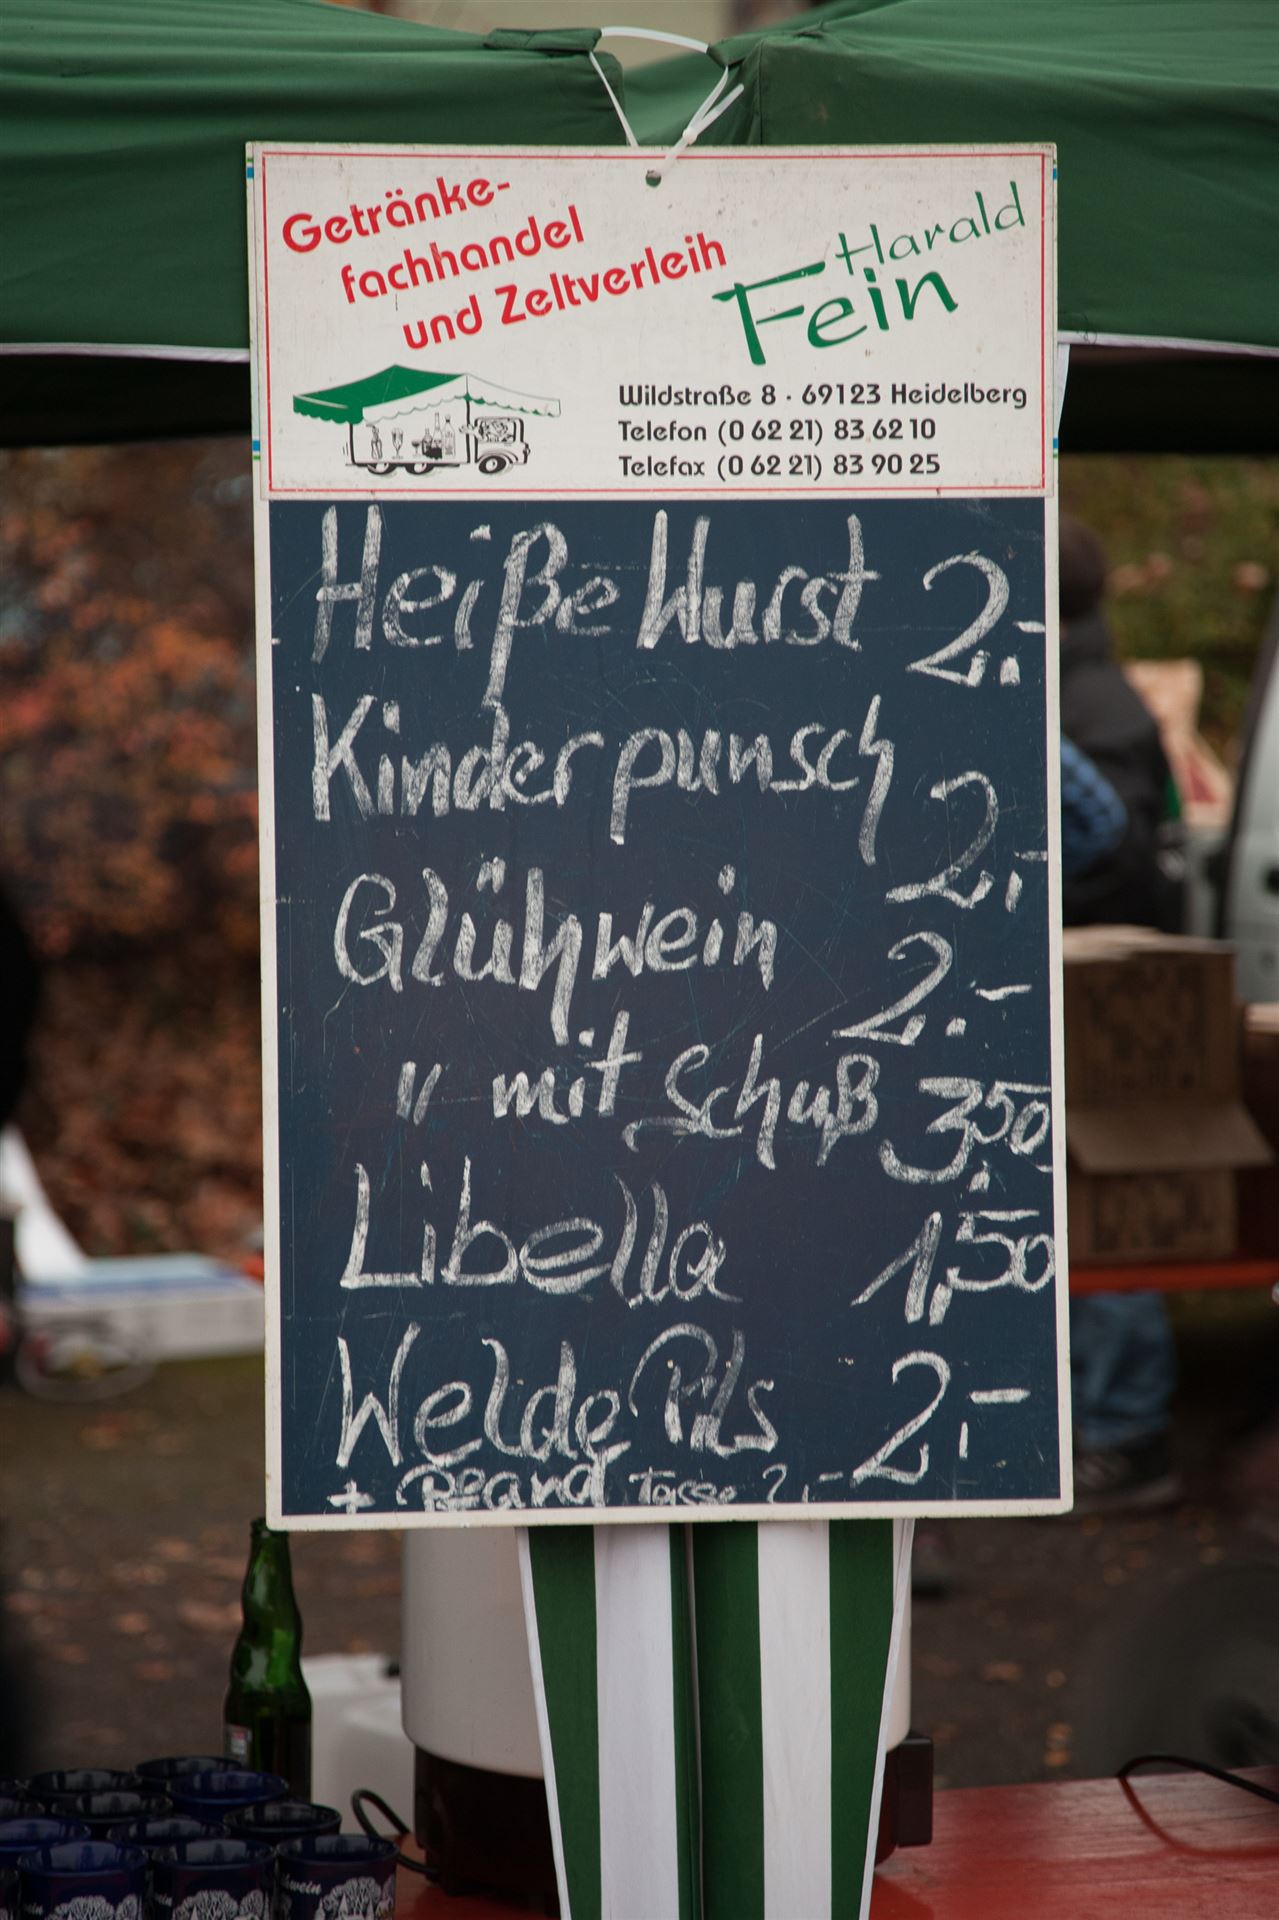 Getränke-
fachhandel
und Zeltverleih
Harald
Fein
Wildstraße 8 · 69123 Heidelberg
Telefon (0 62 21) 83 62 10
Telefax (0 62 21) 83 90 25
Heiße Wurst 2.-
Kinderpunsch 2,-
Glühwein 2.-
" mit Schuß 3,50
Libella 1,50
Welde Pils 2,-
+ Pfand Tasse 2,-